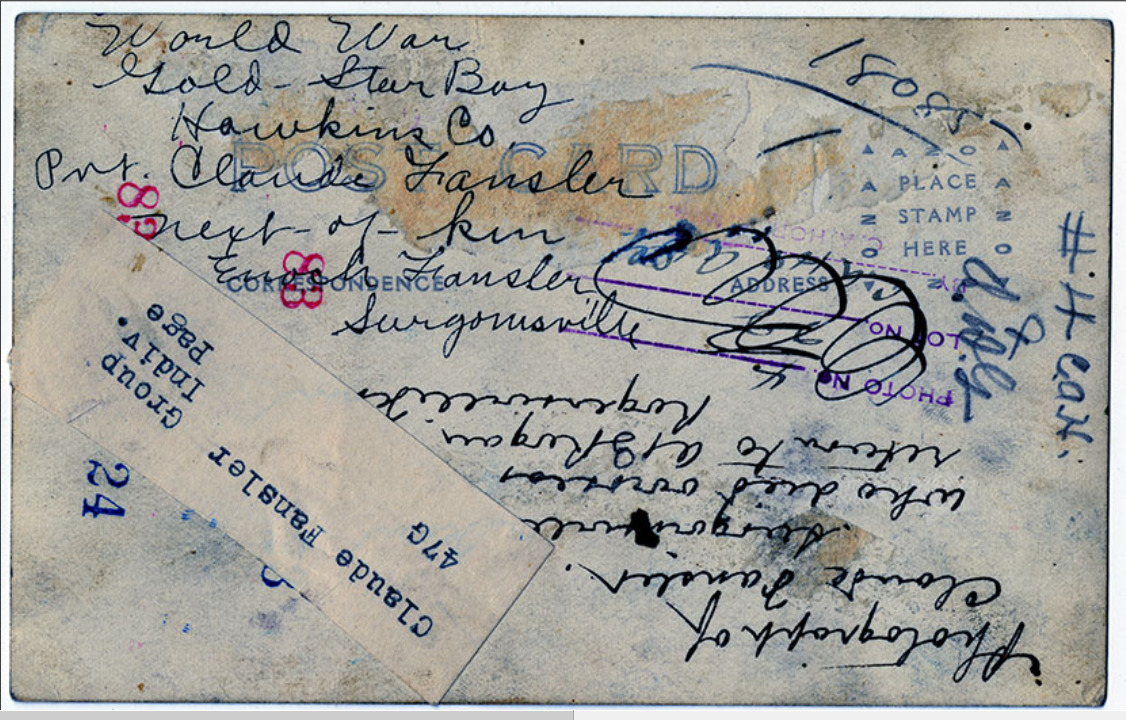 World War
Gold-Star Boy
Hawkins Co.
Pvt. Claude Fansler
next-of-kin
Enoch Fansler
Surgoinsville
POST CARD
CORRESPONDENCE
ADDRESS
AZO
PLACE
STAMP
HERE
1808
83
83
BY
LOT NO.
PHOTO NO.
#4 Can.
24
Group
Indiv.
Page
Claude Fansler
47G
Photograph of
Claude Fansler.
Surgoinsville
who died overseas
return to
Rogersville